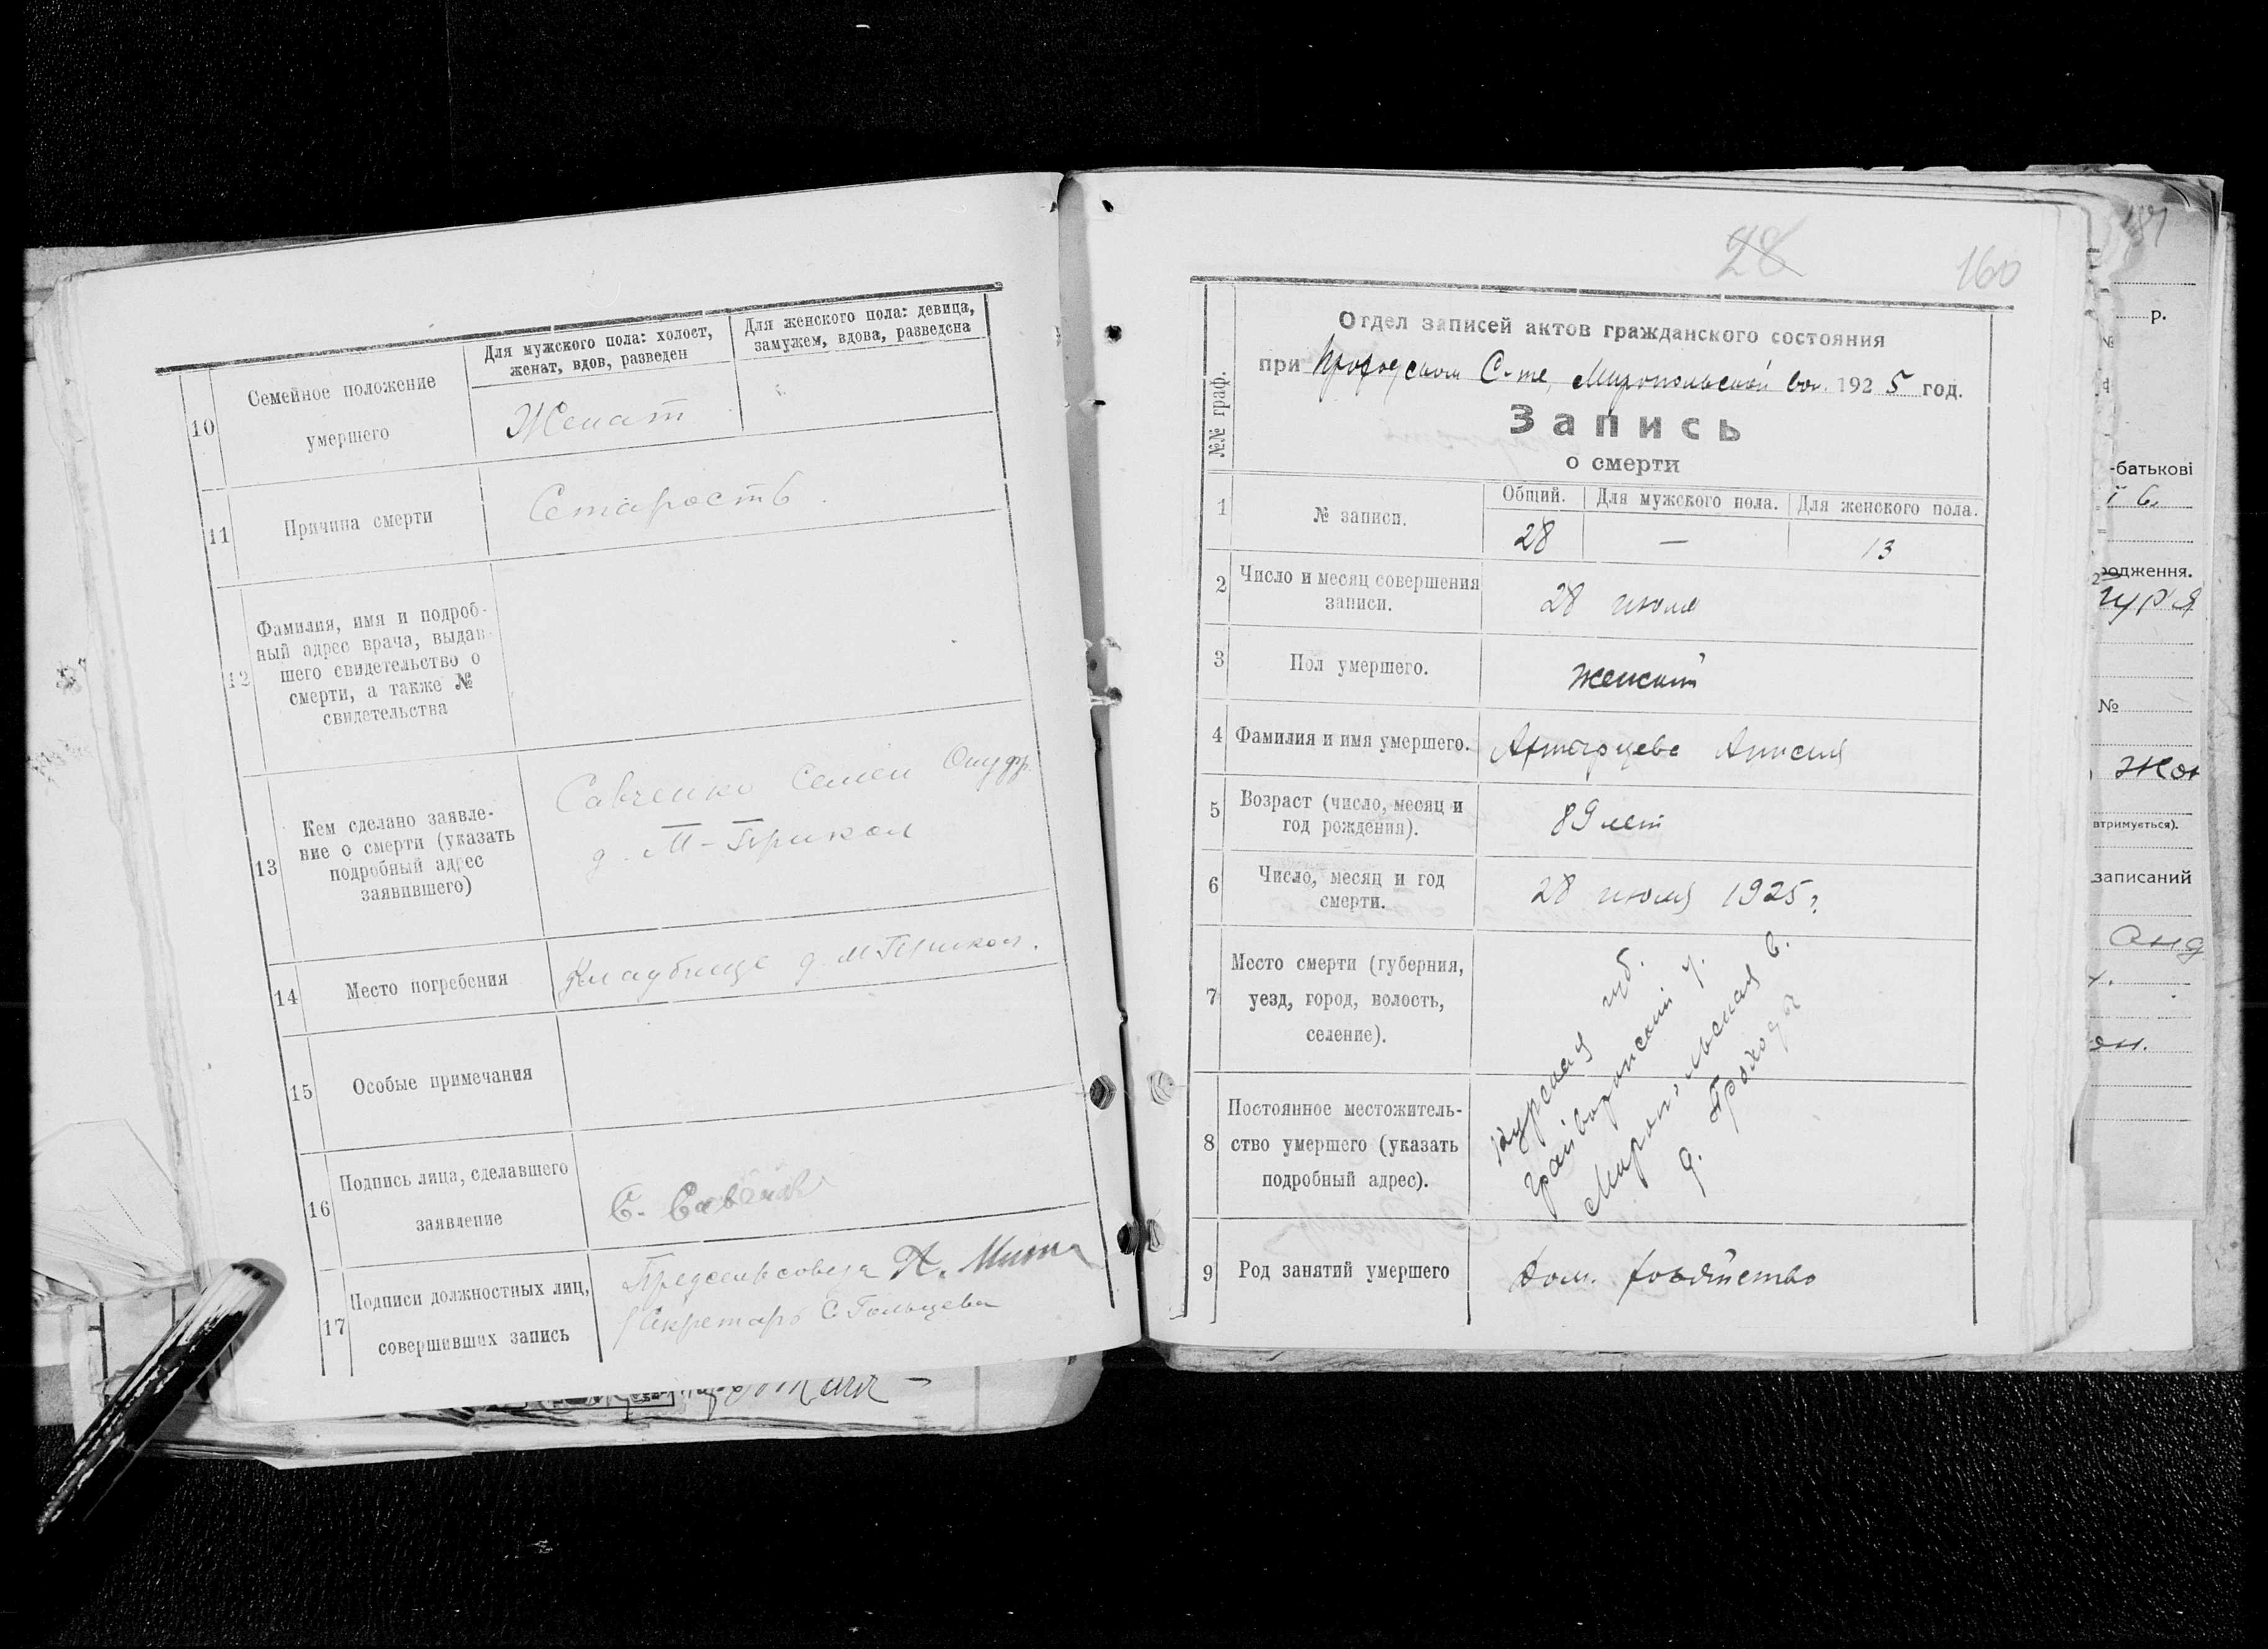 10
Семейное положение
умершего
Для мужского пола: холост,
женат, вдов, разведен
Для женского пола: девица,
замужем, вдова, разведена
Женат
11
Причина смерти
Старость.
12
Фамилия, имя и подроб-
ный адрес врача, выдав-
шего свидетельство о
смерти, а также №
свидетельства
13
Кем сделано заявле-
ние о смерти (указать
подробный адрес
заявившего)
Савченко Семен
д. М-Прикол
14
Место погребения
Кладбище д. М Прикол.
15
Особые примечания
16
Подпись лица, сделавшего
заявление
С.
17
Подписи должностных лиц,
совершивших запись
Предсельсовета
Секретарь С Гольцева
28
160
№№ граф.
Отдел записей актов гражданского состояния
при С-те, Миропольской вол. 1925 год.
Запись
о смерти
1
№ записи.
Общий.
Для мужского пола.
Для женского пола.
28
—
13
2
Число и месяц совершения
записи.
28 июля
3
Пол умершего.
женский
4
Фамилия и имя умершего.
5
Возраст (число, месяц и
год рождения).
89 лет
6
Число, месяц и год
смерти.
28 июля 1925 г.
7
Место смерти (губерния,
уезд, город, волость,
селение).
8
Постоянное местожитель-
ство умершего (указать
подробный адрес).
Курская губ.
Грайворонский у.
Миропольская в.
д. Проходы
9
Род занятий умершего
Дом. хозяйство
р.
№
-батькові
родження.
№
втримується).
записаний